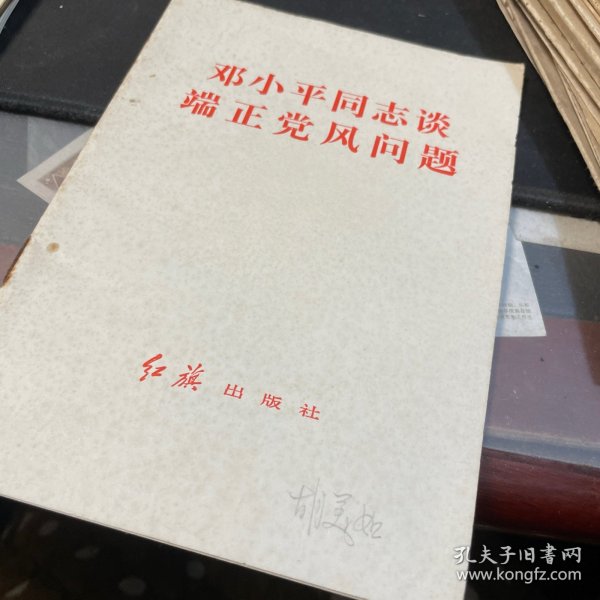 邓小平同志谈
端正党风问题
红旗 出版社
胡美如
孔夫子旧书网
www.kongfz.com